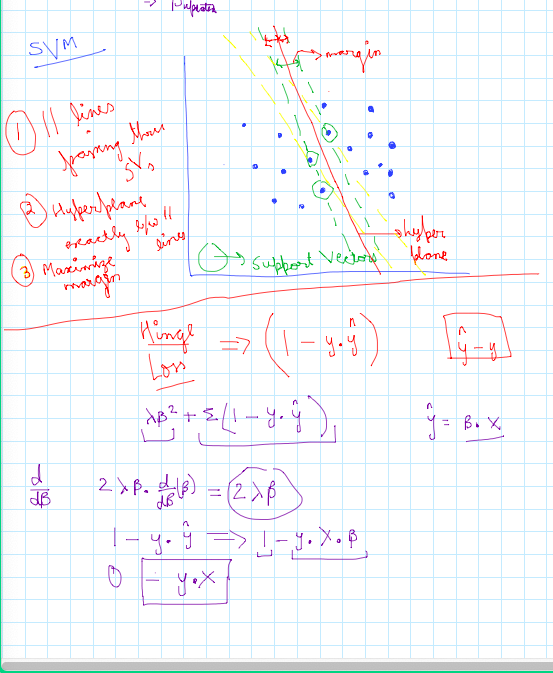 SVM
→ margin
① || lines
passing thru
SVs
② Hyperplane
exactly b/w ||
lines
③ Maximize
margin
→ hyper
plane
→ Support Vectors
Hinge
Loss
=> (1 - y.ŷ)
ŷ - y
λβ² + Σ(1 - y.ŷ)
ŷ = β.X
d/dβ
2λβ. d/dβ(β) = 2λβ
1 - y.ŷ => 1 - y.X.β
0 - y.X